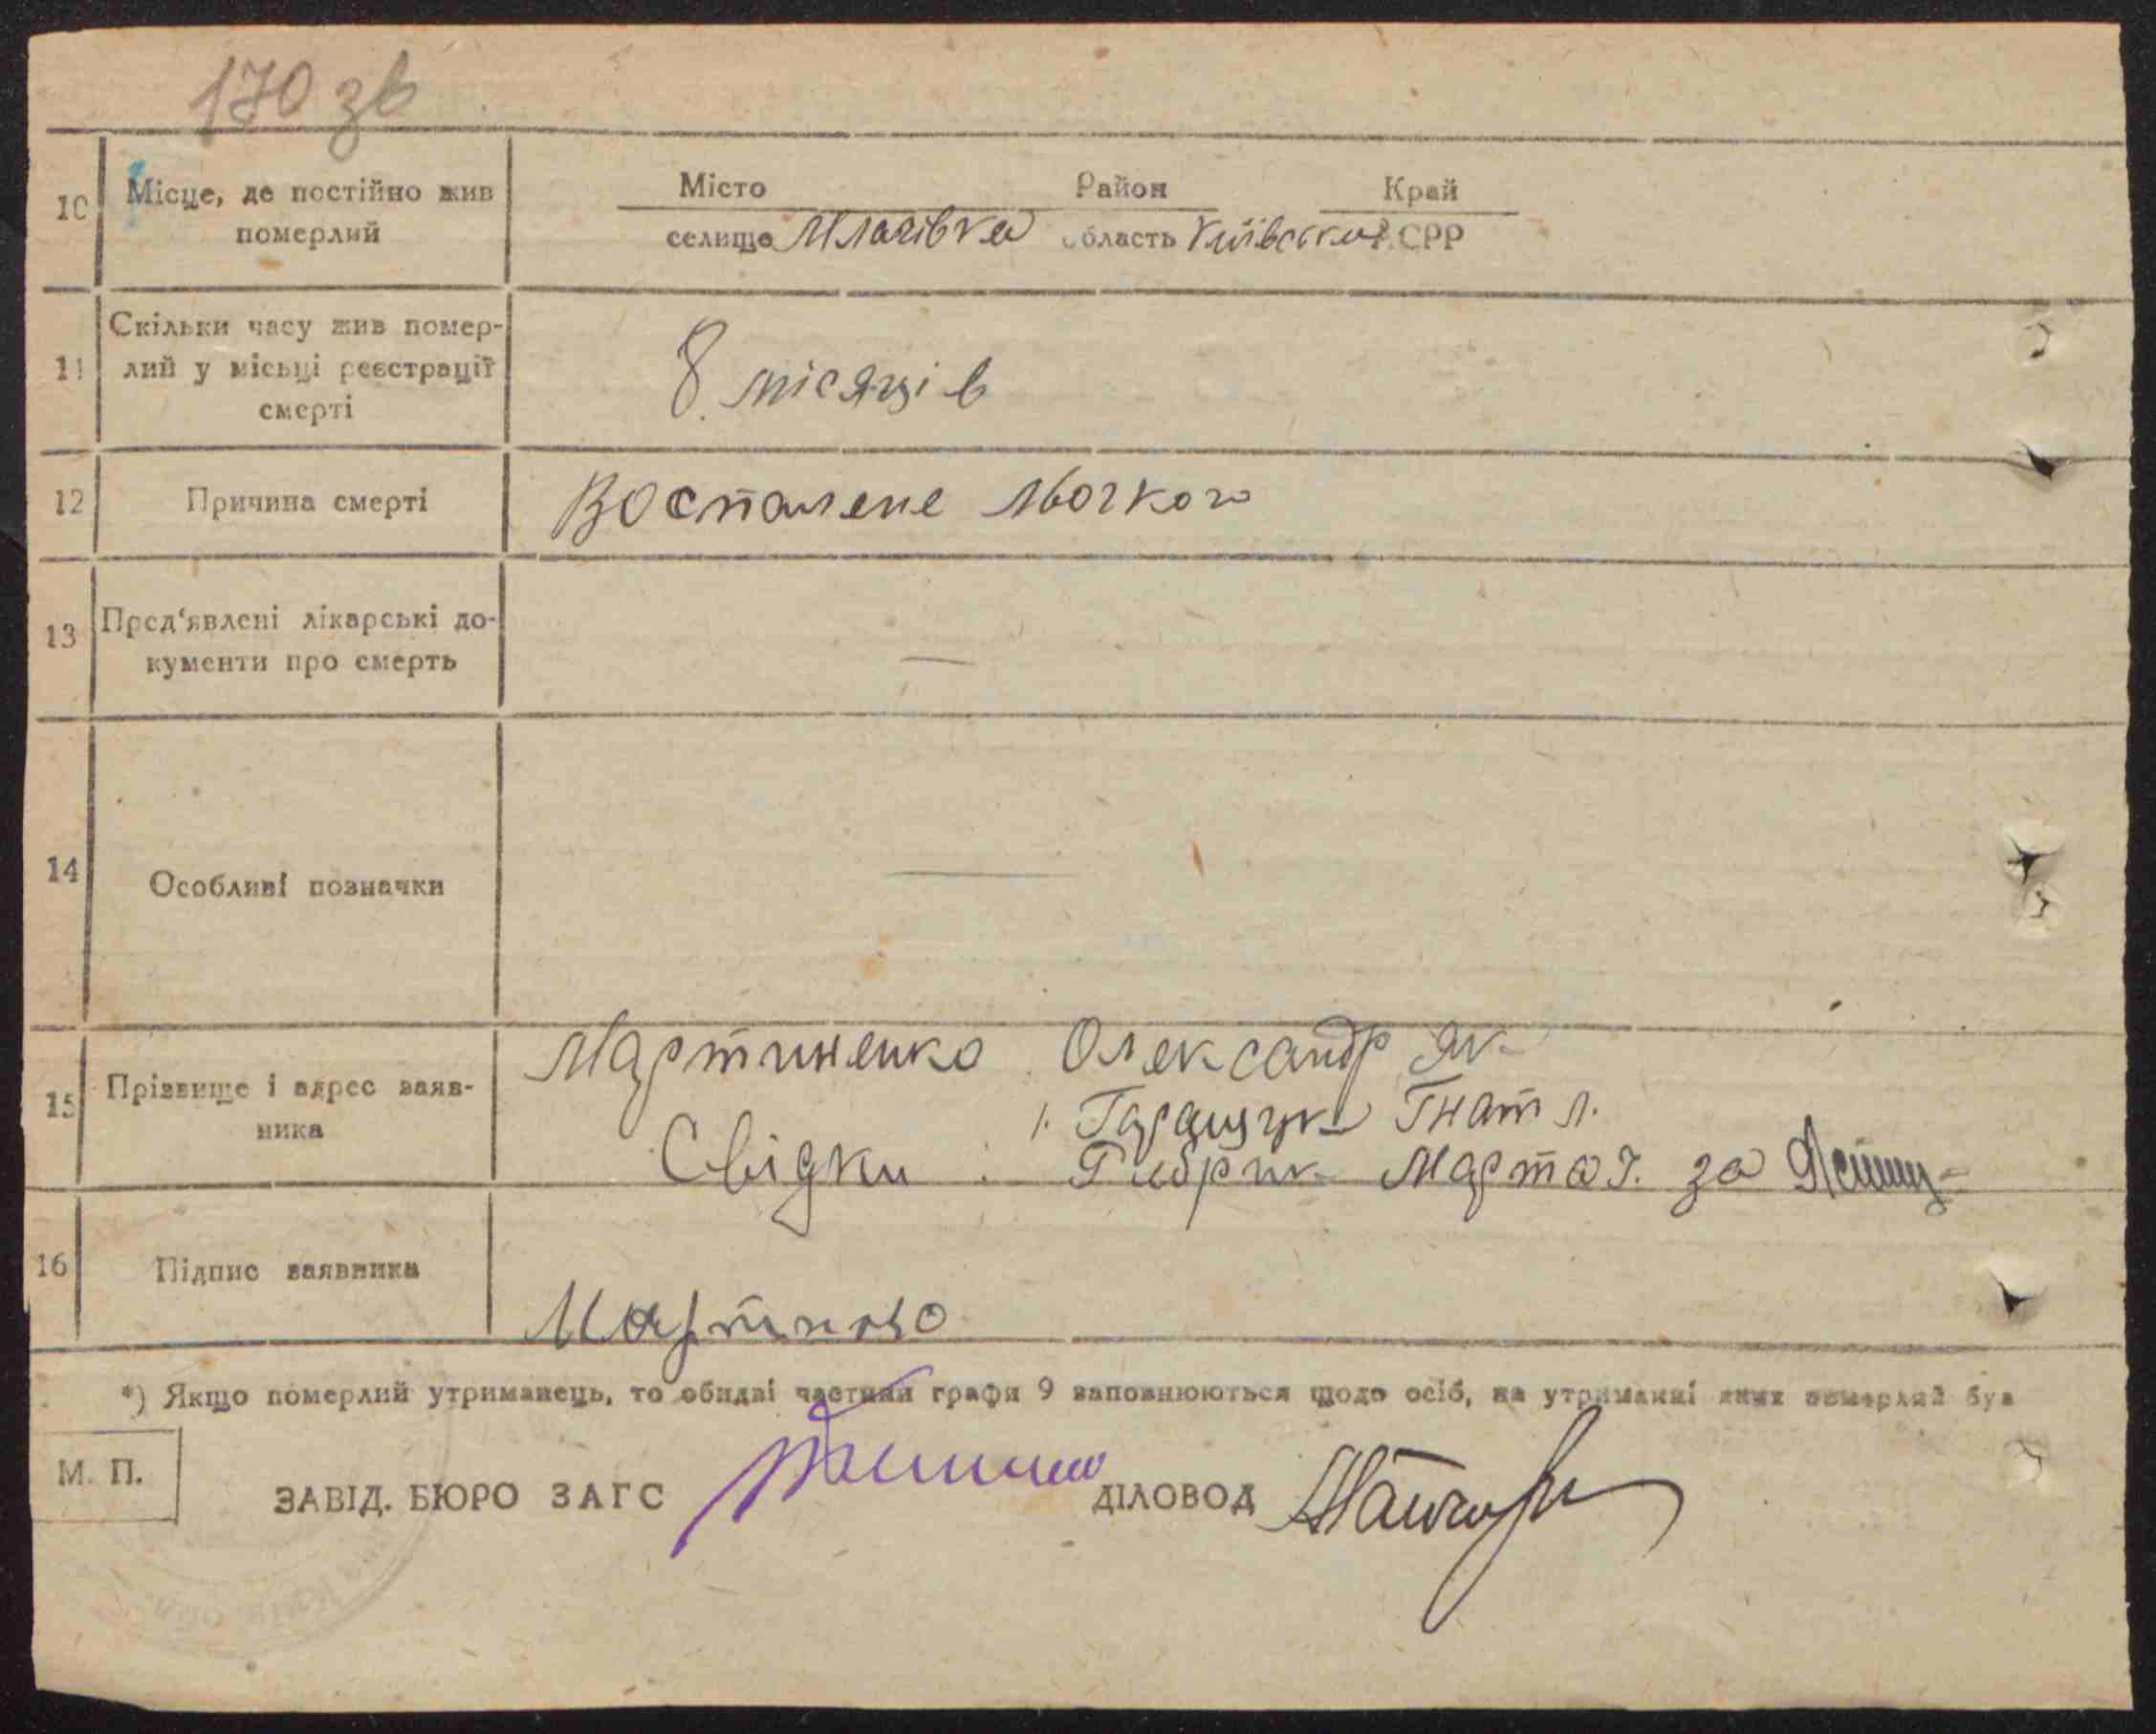 170 зв
10
Місце, де постійно жив
померлий
Місто Район Край
селище Млачівка область Київська АСРР
11
Скільки часу жив помер-
лий у місьці реєстрації
смерті
8 місяців
12
Причина смерті
Воспалене льогкого
13
Пред'явлені лікарські до-
кументи про смерть
—
14
Особливі позначки
—
15
Прізвище і адрес заяв-
ника
Мартиненко Олександр Як
1. Гаращук Гнат Л.
Свідки : Рибрик Марта Г. за
16
Підпис заявника
*) Якщо померлий утриманець, то обидві частини графи 9 заповнюються щодо осіб, на утриманні яких померлий був
М. П.
ЗАВІД. БЮРО ЗАГС ДІЛОВОД